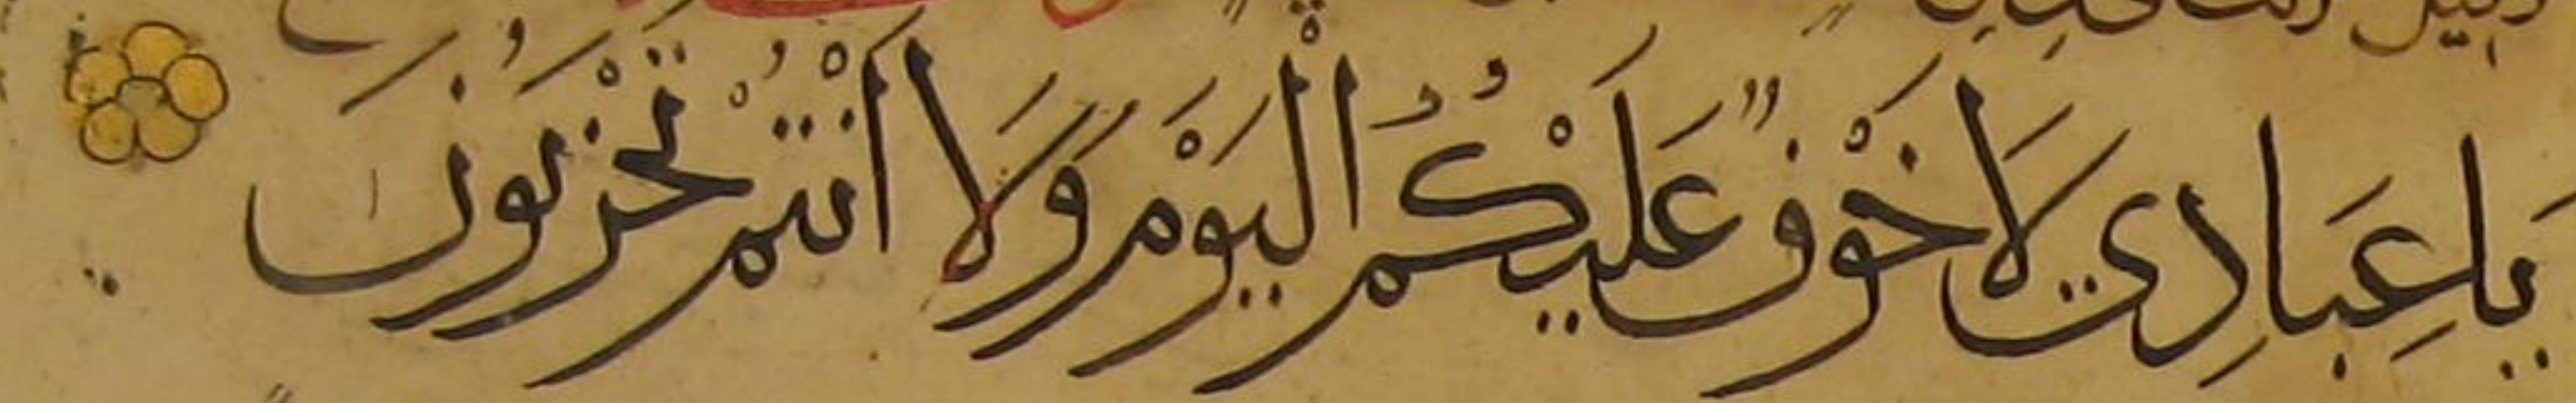 يَا عِبَادِي لَا خَوْفٌ عَلَيْكُمُ الْيَوْمَ وَلَا أَنْتُمْ تَحْزَنُونَ